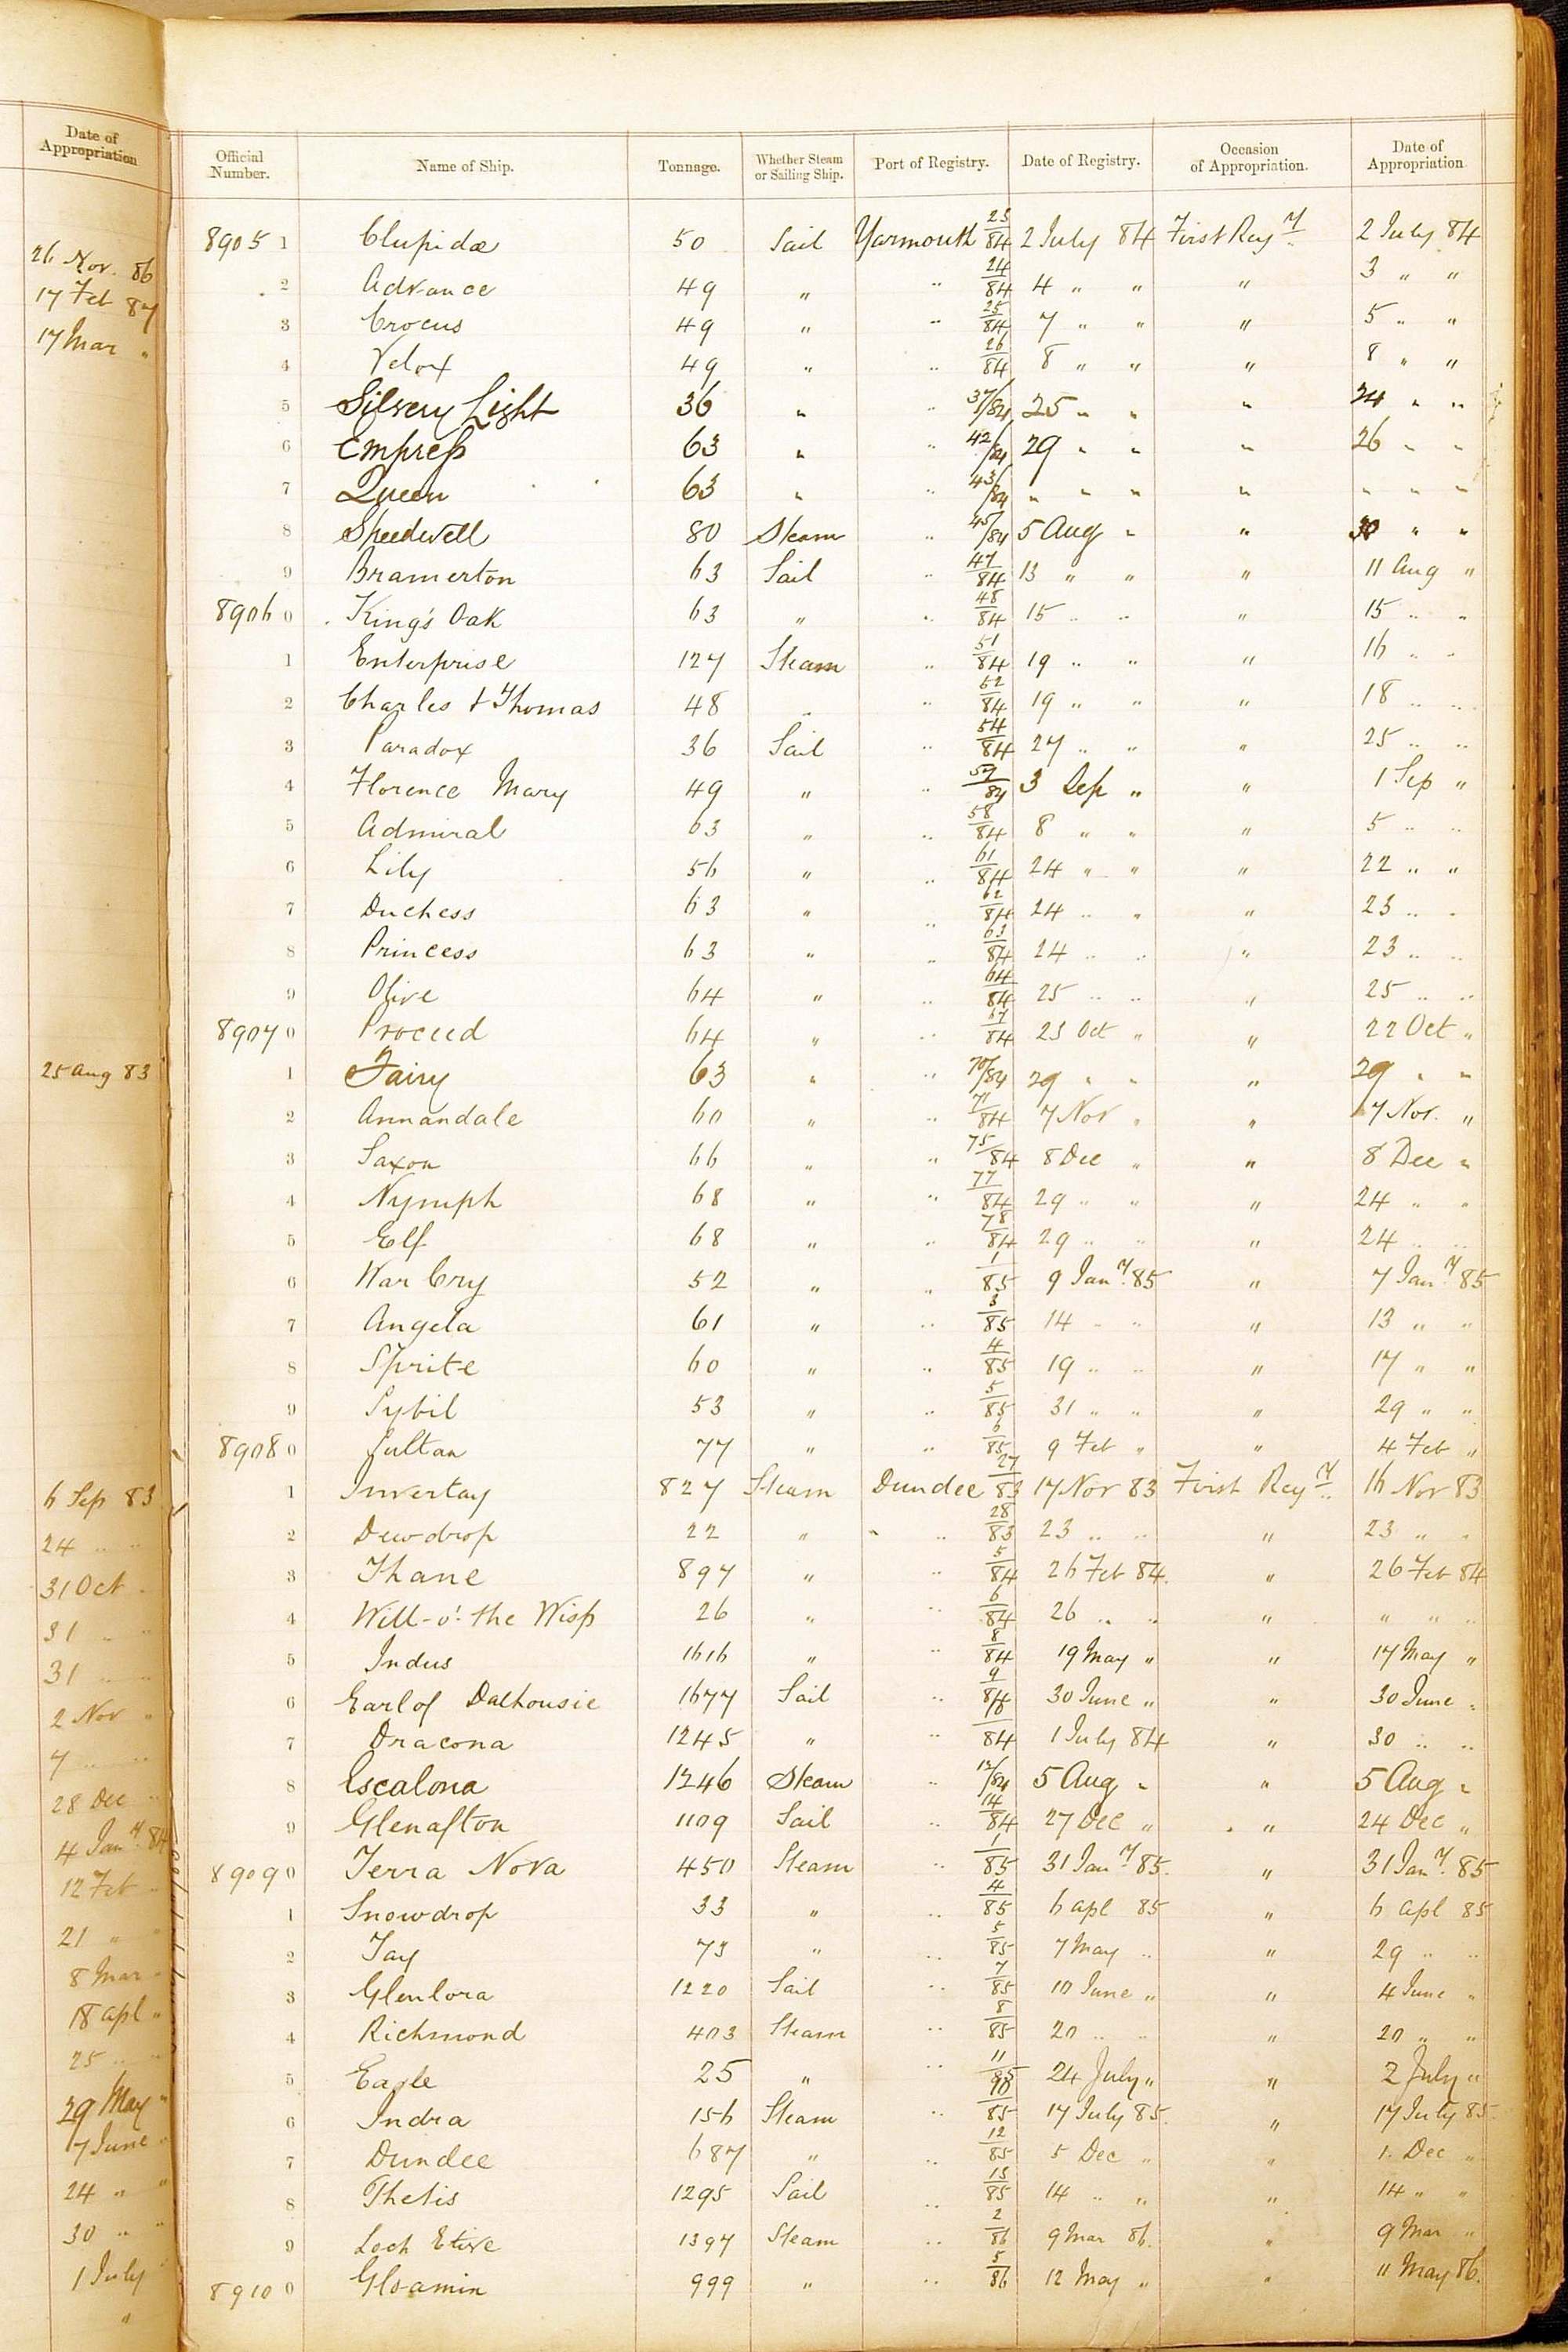 Date of Appropriation
26 Nov. 86
17 Feb 87
17 Mar "
25 Aug 83
6 Sep 83
24 " "
31 Oct "
31 " "
31 " "
2 Nov "
7 " "
28 Dec "
4 Jany. 84
12 Feb "
21 " "
8 Mar "
18 Apl "
25 " "
29 May "
7 June "
24 " "
30 " "
1 July "
"
Official Number. Name of Ship. Tonnage. Whether Steam or Sailing Ship. Port of Registry. Date of Registry. Occasion of Appropriation. Date of Appropriation
8905 1 Clupidæ 50 Sail Yarmouth 23/84 2 July 84 First Regy 2 July 84
2 Advance 49 " " 24/84 4 " " " 3 " "
3 Crocus 49 " " 25/84 7 " " " 5 " "
4 Velox 49 " " 26/84 8 " " " 8 " "
5 Silvery Light 36 " " 37/84 25 " " " 24 " "
6 Empress 63 " " 42/84 29 " " " 26 " "
7 Queen 63 " " 43/84 " " " " " " "
8 Speedwell 80 Steam " 45/84 5 Aug " " 30 " "
9 Bramerton 63 Sail " 47/84 13 " " " 11 Aug "
8906 0 King's Oak 63 " " 48/84 15 " " " 15 " "
1 Enterprise 127 Steam " 51/84 19 " " " 16 " "
2 Charles & Thomas 48 " " 52/84 19 " " " 18 " "
3 Paradox 36 Sail " 54/84 27 " " " 25 " "
4 Florence Mary 49 " " 57/84 3 Sep " " 1 Sep "
5 Admiral 63 " " 58/84 8 " " " 5 " "
6 Lily 56 " " 61/84 24 " " " 22 " "
7 Duchess 63 " " 62/84 24 " " " 23 " "
8 Princess 63 " " 63/84 24 " " " 23 " "
9 Olive 64 " " 64/84 25 " " " 25 " "
8907 0 Proceed 64 " " 67/84 23 Oct " " 22 Oct "
1 Fairy 63 " " 70/84 29 " " " 29 " "
2 Annandale 60 " " 71/84 7 Nov " " 7 Nov. "
3 Saxon 66 " " 75/84 8 Dec " " 8 Dec "
4 Nymph 68 " " 77/84 29 " " " 24 " "
5 Elf 68 " " 78/84 29 " " " 24 " "
6 War Cry 52 " " 1/85 9 Jany. 85 " 7 Jany. 85
7 Angela 61 " " 3/85 14 " " " 13 " "
8 Sprite 60 " " 4/85 19 " " " 17 " "
9 Sybil 53 " " 5/85 31 " " " 29 " "
8908 0 Sultan 77 " " 6/85 9 Feb " " 4 Feb "
1 Invertay 827 Steam Dundee 27/83 17 Nov 83 First Regy. 16 Nov 83
2 Dewdrop 22 " " 28/83 23 " " " 23 " "
3 Thane 897 " " 5/84 26 Feb 84. " 26 Feb 84
4 Will-o'-the Wisp 26 " " 6/84 26 " " " " " "
5 Indus 1616 " " 8/84 19 May " " 17 May "
6 Earl of Dalhousie 1677 Sail " 9/84 30 June " " 30 June "
7 Dracona 1245 " " 10/84 1 July 84 " 30 " "
8 Escalona 1246 Steam " 12/84 5 Aug " " 5 Aug "
9 Glenafton 1109 Sail " 14/84 27 Dec " " 24 Dec "
8909 0 Terra Nova 450 Steam " 1/85 31 Jany. 85. " 31 Jany. 85
1 Snowdrop 33 " " 4/85 6 Apl 85 " 6 Apl 85
2 Tay 73 " " 5/85 7 May " " 29 " "
3 Glenlora 1220 Sail " 7/85 10 June " " 4 June "
4 Richmond 403 Steam " 8/85 20 " " " 20 " "
5 Eagle 25 " " 11/85 24 July " " 2 July "
6 Indra 156 Steam " 10/85 17 July 85. " 17 July 85.
7 Dundee 687 " " 12/85 5 Dec " " 1. Dec "
8 Thetis 1295 Sail " 13/85 14 " " " 14 " "
9 Loch Etive 1397 Steam " 2/86 9 Mar 86. " 9 Mar "
8910 0 Gloamin 999 " " 5/86 12 May " " 11 May 86.